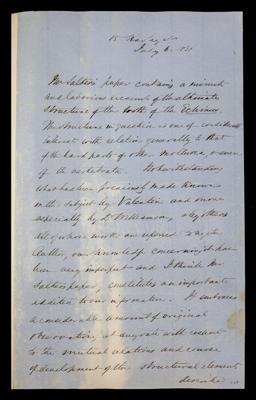 15
July 6. 1861
Mr Salter's paper contains a minute
and laborious account of the ultimate
structure of the tooth of the Echinus.
The structure in question is one of considerable
interest with relation generally to that
of the hard parts of other Mollusca, & even
of the vertebrata. Notwithstanding
what has been previously made known
on the subject by Valentin and more
especially by Dr Williamson, & by others
all of whose work are referred to by the
Author, our knowledge concerning it has
been very imperfect and I think Mr
Salter's paper, constitutes an important
addition to our information. It embraces
a considerable amount of original
observation, at any rate with respect
to the mutual relations and course
of development of the structural elements